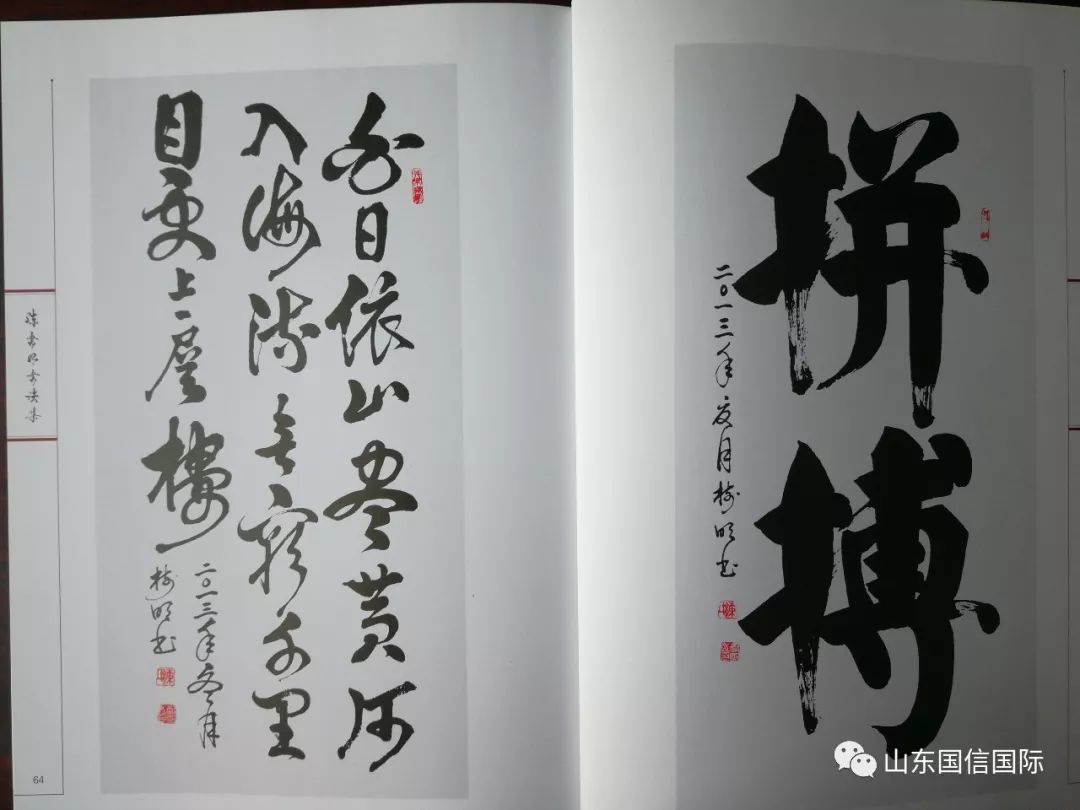 白日依山盡黄河
入海流欲窮千里
目更上一層樓
二〇一三年冬月
樹明书
陈树明书法集
64
拼搏
二〇一三年夏月樹明书
山东国信国际